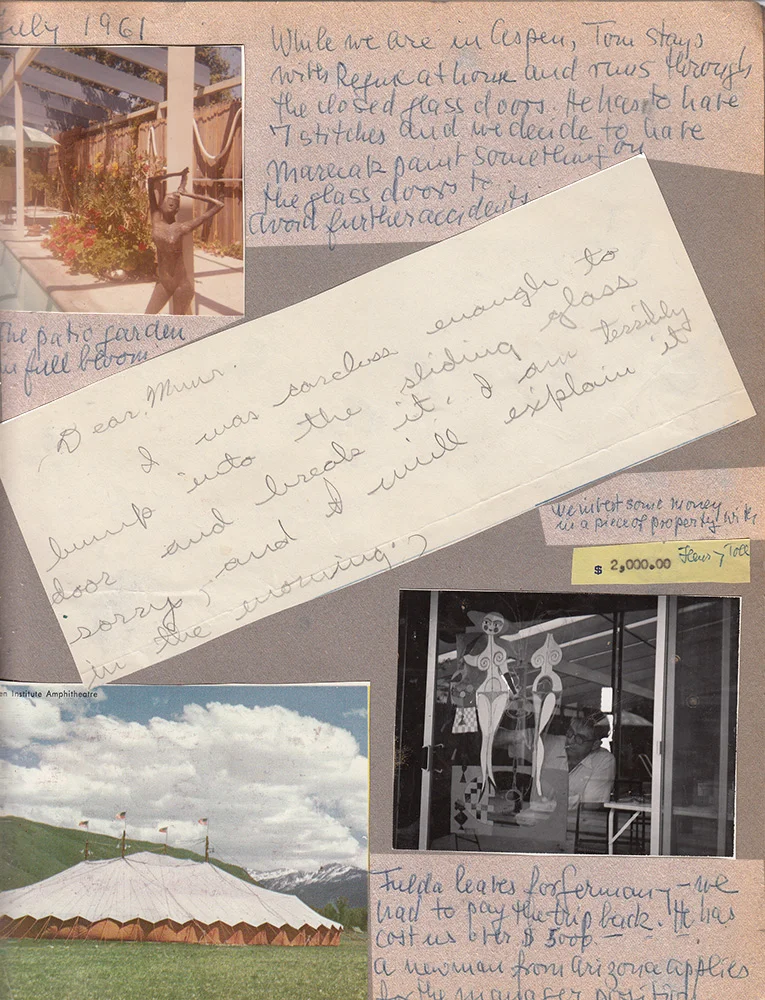 July 1961
While we are in Aspen, Tom stays
with Regine at home and runs through
the closed glass doors. He has to have
7 stitches and we decide to have
paint something on
the glass doors to
avoid further accidents.
The patio garden
in full bloom
Dear Mum.
I was careless enough to
bump into the sliding glass
door and break it. I am terribly
sorry, and I will explain it
in the morning.
We invest some money
in a piece of property with
$ 2,000.00 Henry Toll
en Institute Amphitheatre
Fulda leaves for Germany – we
had to pay the trip back. He has
cost us over $ 5000.–
A new man from Arizona applies
for the manager position